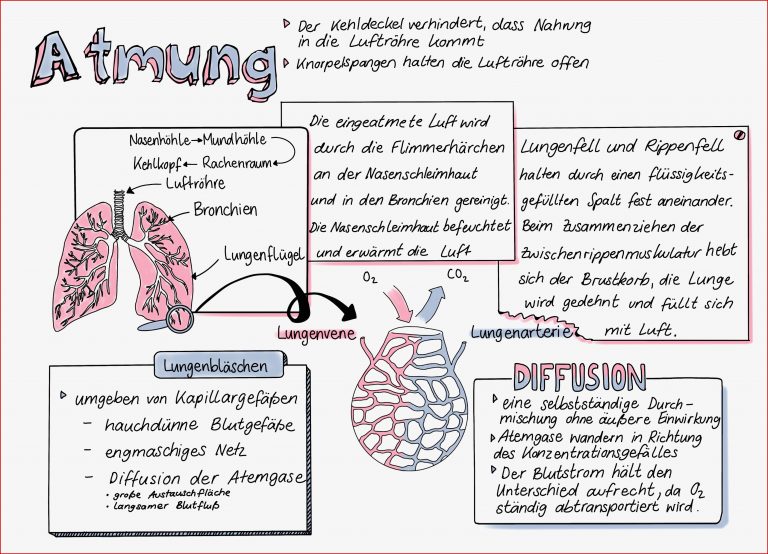 Atmung
Der Kehldeckel verhindert, dass Nahrung
in die Luftröhre kommt
Knorpelspangen halten die Luftröhre offen
Nasenhöhle → Mundhöhle
Kehlkopf ← Rachenraum
Luftröhre
Bronchien
Lungenflügel
Die eingeatmete Luft wird
durch die Flimmerhärchen
an der Nasenschleimhaut
und in den Bronchien gereinigt.
Die Nasenschleimhaut befeuchtet
und erwärmt die Luft
Lungenfell und Rippenfell
halten durch einen flüssigkeits-
gefüllten Spalt fest aneinander.
Beim Zusammenziehen der
Zwischenrippenmuskulatur hebt
sich der Brustkorb, die Lunge
wird gedehnt und füllt sich
mit Luft.
O₂
CO₂
Lungenvene
Lungenarterie
Lungenbläschen
umgeben von Kapillargefäßen
– hauchdünne Blutgefäße
– engmaschiges Netz
– Diffusion der Atemgase
• große Austauschfläche
• langsamer Blutfluß
DIFFUSION
eine selbstständige Durch-
mischung ohne äußere Einwirkung
Atemgase wandern in Richtung
des Konzentrationsgefälles
Der Blutstrom hält den
Unterschied aufrecht, da O₂
ständig abtransportiert wird.